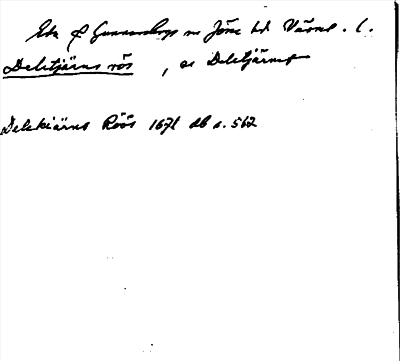 Gunnarskogs sn Jösse hd Värml. l.
Deletjärns rös , se Deletjärnet
Delekiärns Röös 1671 db s. 562